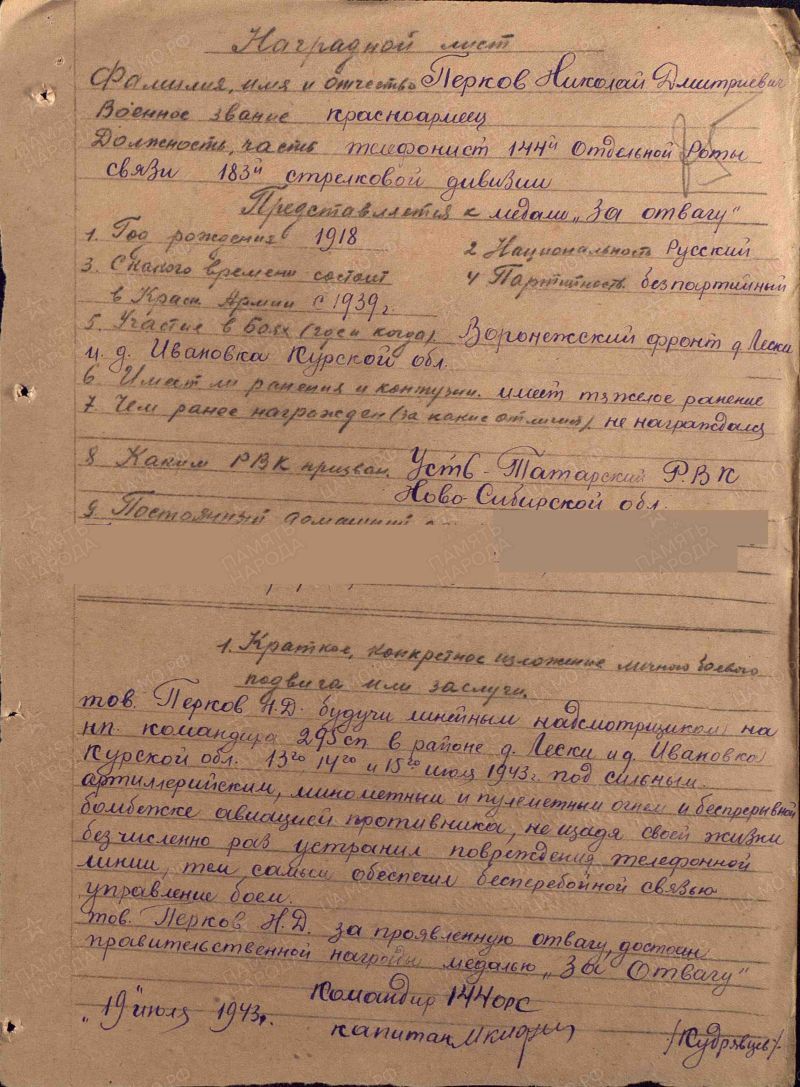 Наградной лист
Фамилия, имя и отчество Перков Николай Дмитриевич
Военное звание красноармеец
Должность, часть телефонист 144й Отдельной Роты
связи 183й стрелковой дивизии
Представляется к медали „За отвагу"
1. Год рождения 1918
2 Национальность Русский
3. С какого времени состоит
в Красн. Армии с 1939 г.
4 Партийность безпартийный
5. Участие в боях (где и когда) Воронежский фронт д. Лески
и д. Ивановка Курской обл.
6. Имеет ли ранения и контузии. имеет тяжелое ранение
7. Чем ранее награжден (за какие отличия) не награждался
8. Каким РВК призван. Усть-Татарский РВК
Ново-Сибирской обл.
9. Постоянный домашний
1. Краткое, конкретное изложение личного боевого
подвига или заслуги.
тов. Перков Н.Д. будучи линейным надсмотрщиком на
нп. командира 295сп в районе д. Лески и д. Ивановка
Курской обл. 13го, 14го и 15го июля 1943г. под сильным
артиллерийским, минометным и пулеметным огнем и беспрерывной
бомбежке авиацией противника, не щадя своей жизни
безчисленно раз устранил повреждения телефонной
линии, тем самым обеспечил бесперебойной связью
управление боем.
тов. Перков Н.Д. за проявленную отвагу, достоин
правительственной награды медалью „За Отвагу"
Командир 144орс
„19" июля 1943г.
капитан
/Кудрявцев/.
ПАМЯТЬ НАРОДА
ЦАМО.РФ